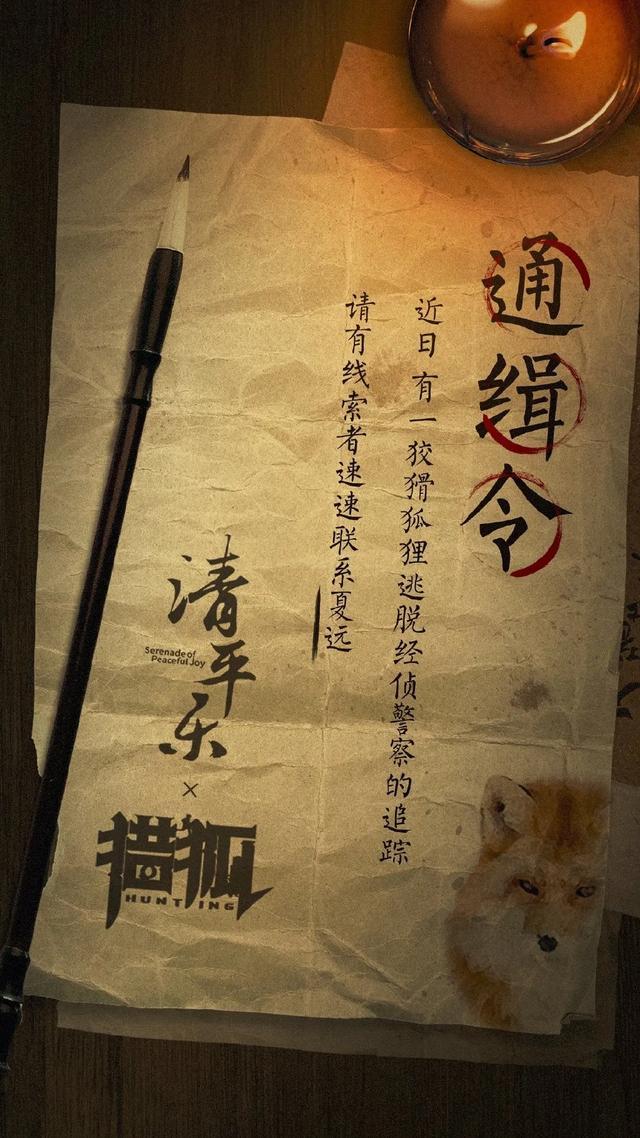 通缉令
近日有一狡猾狐狸逃脱经侦警察的追踪
请有线索者速速联系夏远
清平乐
Serenade of
Peaceful Joy
×
猎狐
HUNTING